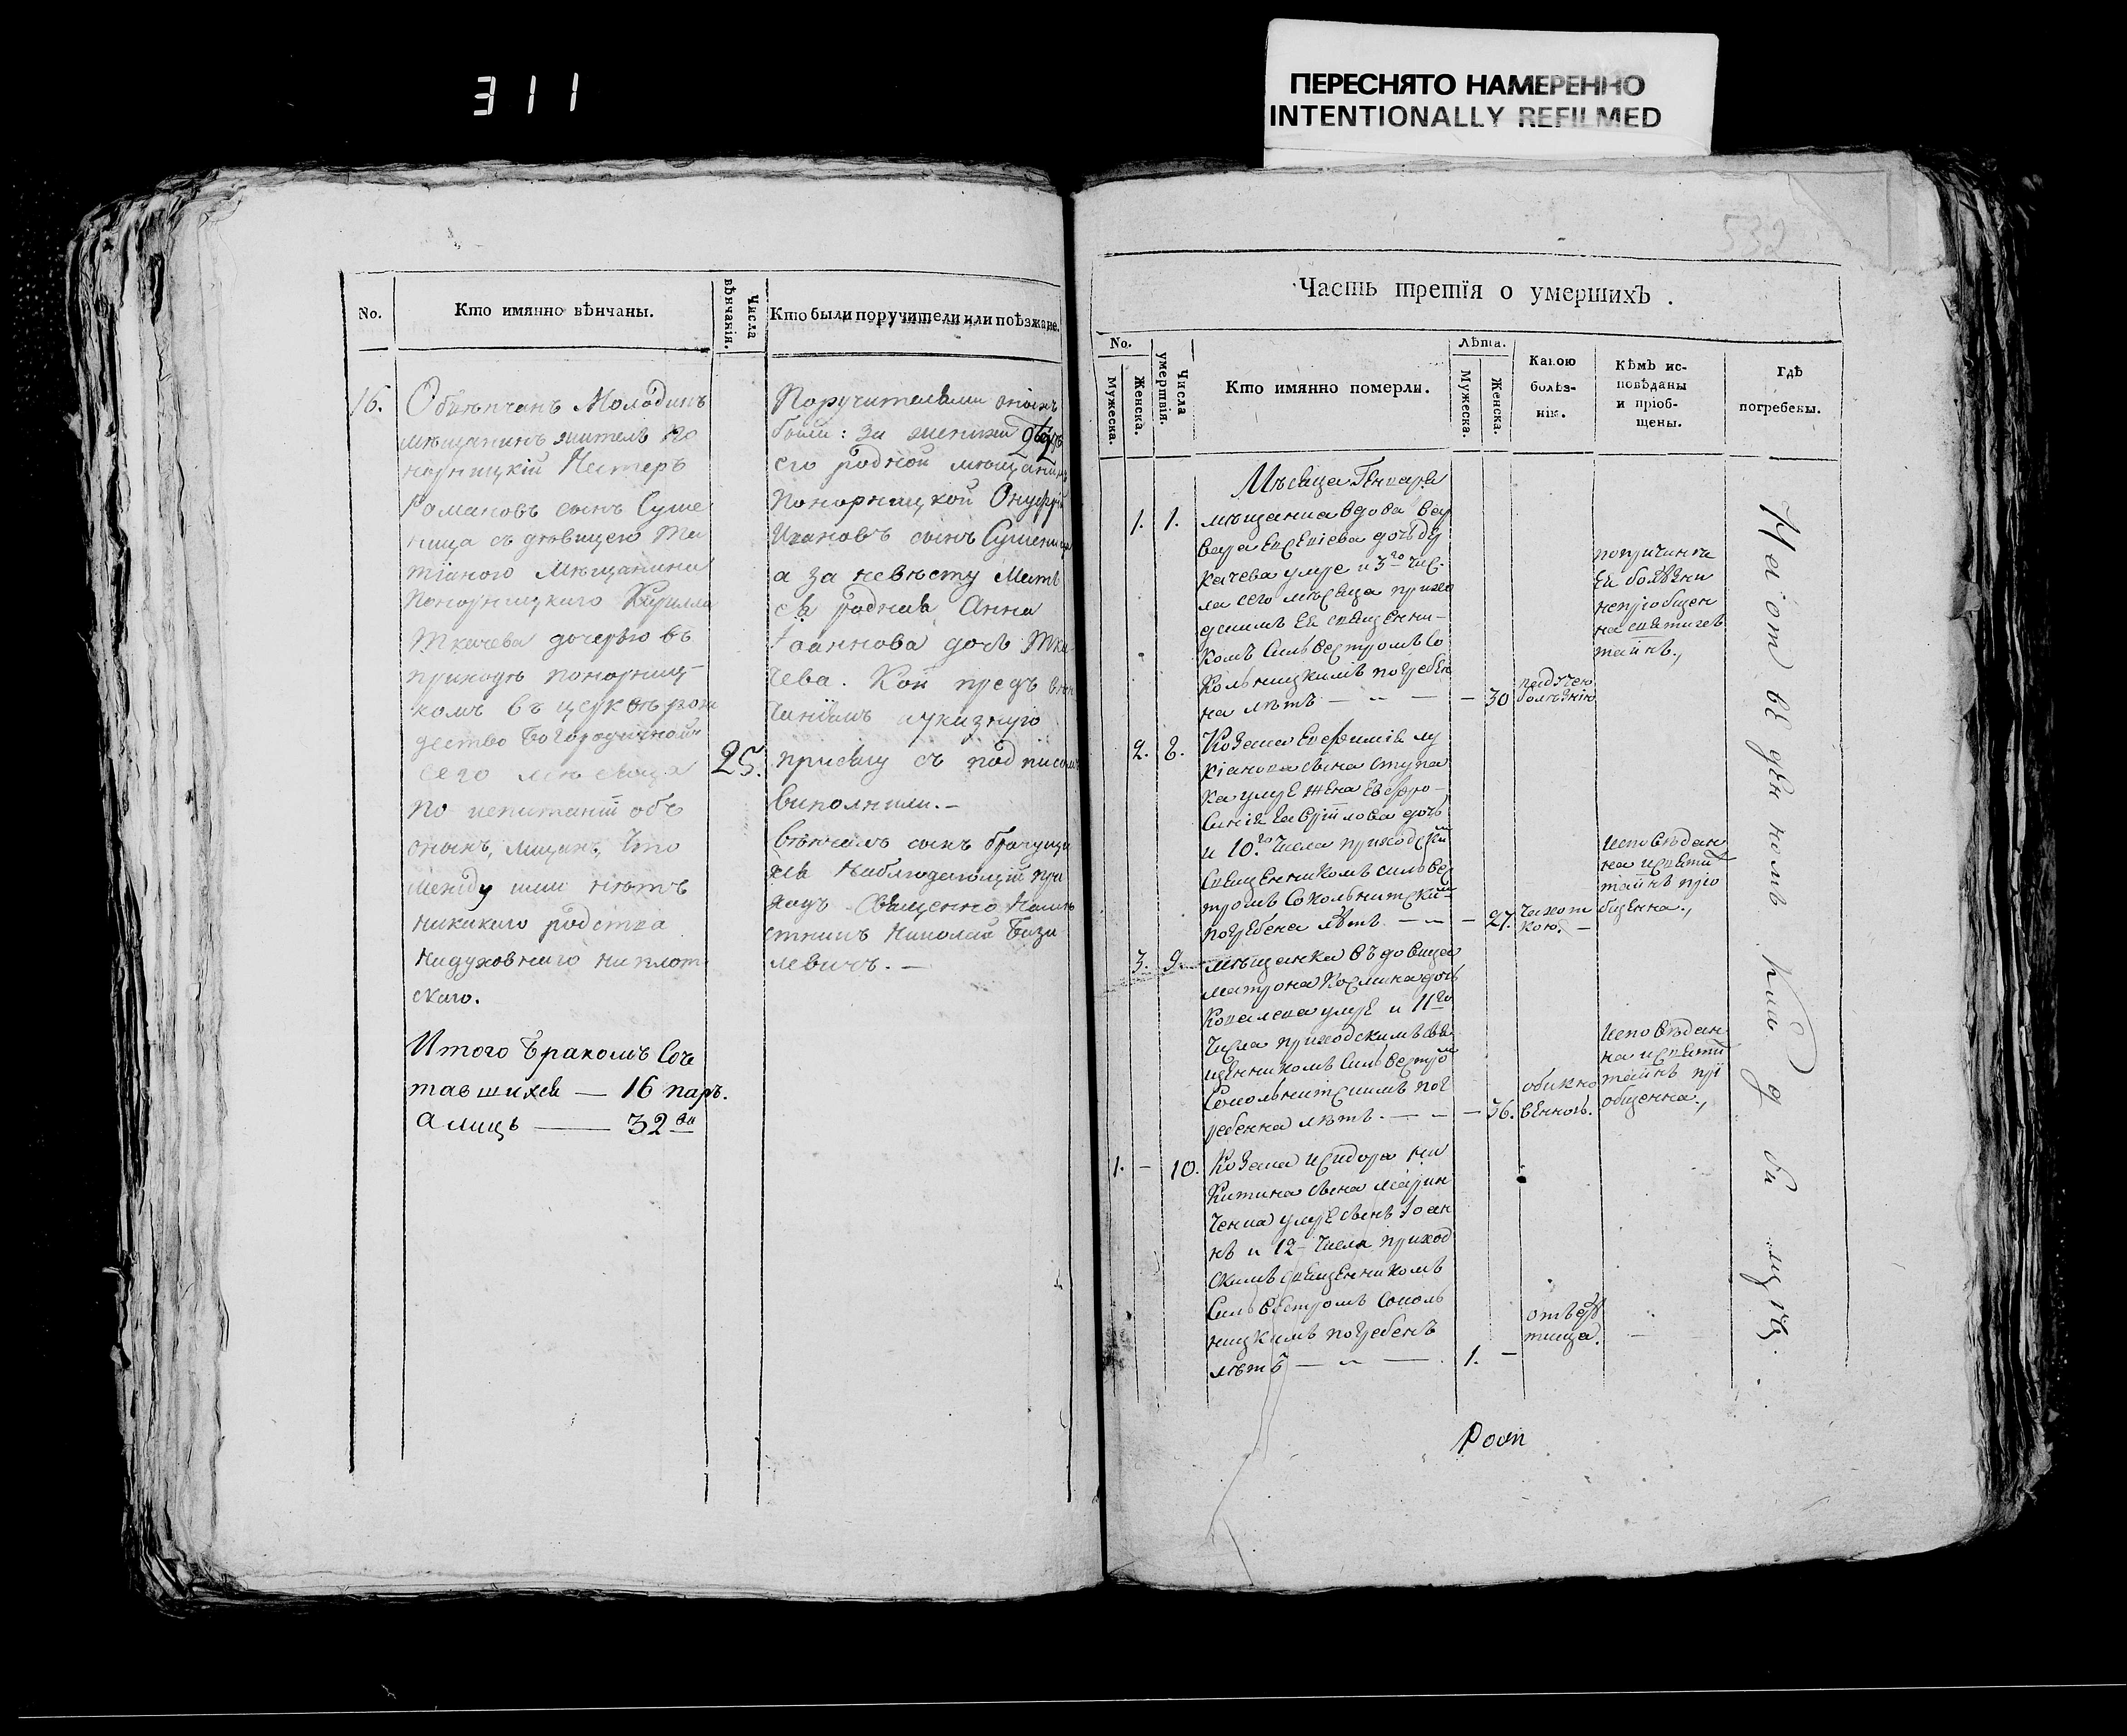 311
ПЕРЕСНЯТО НАМЕРЕННО
INTENTIONALLY REFILMED
532
No.
Кто имянно вѣнчаны.
Числа вѣнчанія.
Кто были поручители или поѣзжане.
16.
Обвѣнчанъ Молодикъ
мѣщанинъ жител по
норницкій Нестеръ
Романовъ сынъ Суше
ница съ дѣвицею Та
тіаною мѣщанина
Понорницкого Кирилла
Ткачева дочерью въ
приходѣ понорниц
комъ въ церквѣ рож
дество Богородичной
сего мѣсяца
25.
по испитаніи объ
оныхъ, лицахъ, что
между ими нѣтъ
никакого родства
нидуховнаго ниплот
скаго.
Итого Бракомъ Соче
тавшихся — 16 паръ.
а лицъ — 32
Поручителями оныхъ
были: за жениха
его родной мѣщанинъ
Понорницкой Онуфрій
Ивановъ сынъ Сушеница
а за невѣсту Мать
ея родная Анна
Іоаннова дочь Тка
чева. Кои предъ вѣн
чаніемъ указную
присягу съ подписомъ
виполнили.—
Вѣнчалъ сихъ брачущи
хся наблюдающій при
ходъ Священно намѣ
стникъ Николай Бази
левичъ.—
Часть третія о умершихъ.
No.
Мужеска.
Женска.
Числа умертвія.
Кто имянно померли.
Лѣта.
Мужеска.
Женска.
Какою болѣз-
нію.
Кѣмъ ис-
повѣданы
и пріоб-
щены.
Гдѣ
погребены.
Мѣсяца Генваря
1. 1.
мѣщанка вдова Вар
вара Евсеніева дочь
качева умре и 3го чис
ла сего мѣсяца прихо
дскимъ священни-
комъ Сильвестромъ Со
кольницкимъ погребен
на лѣтъ — — — 30
падучею
болѣзнію
попричинѣ
ея болѣзни
непріобщен
на святихъ
тайнъ.,
2. 8.
Козака Евфимія лу
кіанова сина Ступа
ка умре жена Евфро-
синія Гавріилова дочь
и 10.го числа приходскім
Священникомъ Сильвес
тромъ Сокольнитскимъ
погребена лѣтъ — — — 27.
чахот
кою.—
исповѣдан
на исвятих
тайнъ пріо
бщенна.,
3. 9.
мѣщанка въдовица
матрона Космина дочь
Ковалева умре и 11го
Числа приходскимъ свя
щенникомъ Сильвестром
Сокольнитскимъ пог
ребенна лѣтъ. — — — 36.
обикно
венною.
исповѣдан
на исвятих
тайнъ прі
общенна.,
1. — 10.
Козака исидора ни
китина сина марин
ченка умре синъ Іоан
нъ и 12 числа приход
скимъ священникомъ
Сильвестромъ Соколь
ницкимъ погребенъ
лѣтъ — — — 1. —
—
На отведенномъ кладбищѣ.